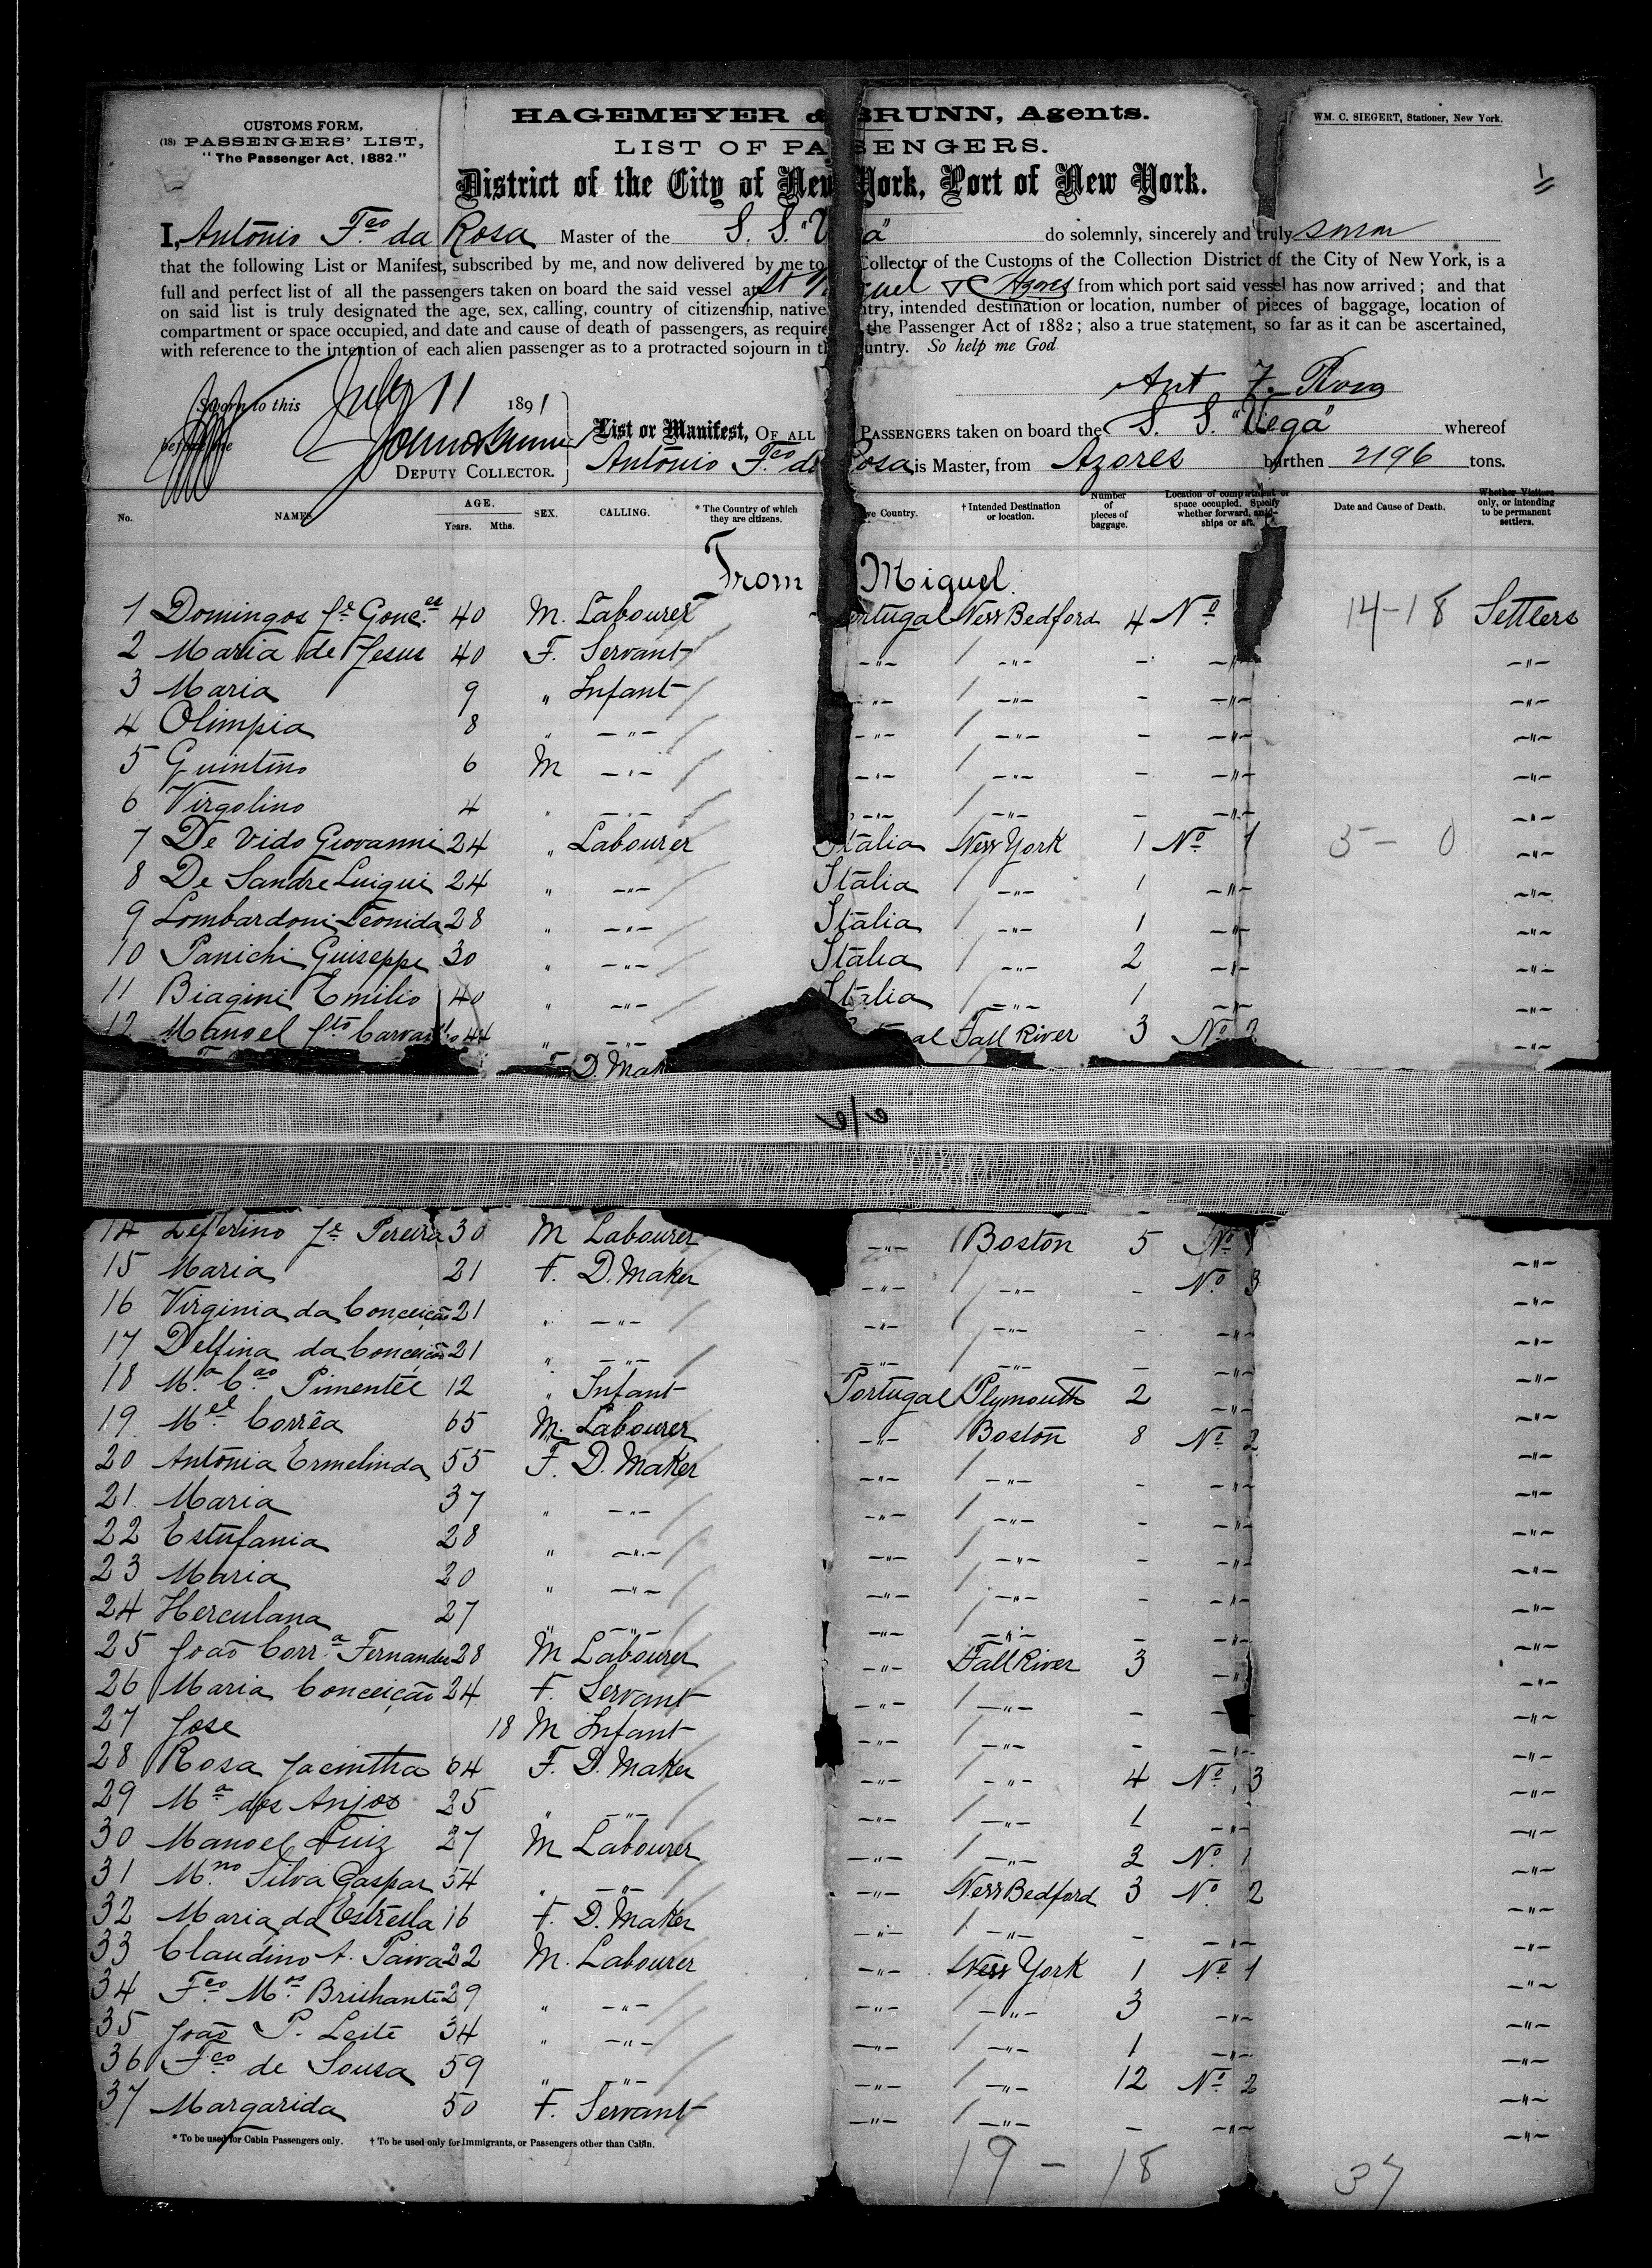 CUSTOMS FORM,
(18) PASSENGERS' LIST,
"The Passenger Act, 1882."
HAGEMEYER & BRUNN, Agents.
LIST OF PASSENGERS.
District of the City of New York, Port of New York.
WM. C. SIEGERT, Stationer, New York.
1
I, António F.co da Rosa Master of the S. S. "Vega" do solemnly, sincerely and truly
that the following List or Manifest, subscribed by me, and now delivered by me to Collector of the Customs of the Collection District of the City of New York, is a
full and perfect list of all the passengers taken on board the said vessel at St Miguel & Azores from which port said vessel has now arrived; and that
on said list is truly designated the age, sex, calling, country of citizenship, native country, intended destination or location, number of pieces of baggage, location of
compartment or space occupied, and date and cause of death of passengers, as required the Passenger Act of 1882; also a true statement, so far as it can be ascertained,
with reference to the intention of each alien passenger as to a protracted sojourn in this country. So help me God
Ant F. Rosa
Sworn to this July 11 1891
before me
DEPUTY COLLECTOR.
List or Manifest, OF ALL PASSENGERS taken on board the S. S. "Vega" whereof
António F.co da Rosa is Master, from Azores burthen 2196 tons.
No. NAMES AGE. Years. Mths. SEX. CALLING. * The Country of which they are citizens. Native Country. † Intended Destination or location. Number of pieces of baggage. Location of compartment or space occupied. Specify whether forward, amidships or aft. Date and Cause of Death. Whether Visitors only, or intending to be permanent settlers.
From Miguel
1 Domingos Je Gonc.es 40 M. Labourer Portugal New Bedford 4 No 14-18 Settlers
2 Maria de Jesus 40 F. Servant -"- -"- - -"- -"-
3 Maria 9 " Infant -"- -"- - -"- -"-
4 Olimpia 8 " -"- -"- -"- - -"- -"-
5 Quintino 6 M -"- -"- -"- - -"- -"-
6 Virgolino 4 " -"- -"- -"- - -"- -"-
7 De Vido Giovanni 24 " Labourer Italia New York 1 No 1 5 - 0 -"-
8 De Sandre Luigui 24 " -"- Italia -"- 1 -"- -"-
9 Lombardoni Leonida 28 " -"- Italia -"- 1 -"- -"-
10 Panichi Guiseppe 30 " -"- Italia -"- 2 -"- -"-
11 Biagini Emilio 40 " -"- Italia -"- 1 -"- -"-
12 Manoel 44 " -"- Fall River 3 No 2 -"-
F D. Mak
14 Je Pereira 30 M Labourer -"- Boston 5 No 1 -"-
15 Maria 21 F. D. Maker -"- -"- - No 3 -"-
16 Virginia da Conceição 21 " -"- -"- -"- - -"- -"-
17 Delfina da Conceição 21 " -"- -"- -"- - -"- -"-
18 M.a C.ao Pimentél 12 " Infant Portugal Plymouth 2 -"- -"-
19 M.el Corrêa 65 M. Labourer -"- Boston 8 No 2 -"-
20 António Ermelinda 55 F. D. Maker -"- -"- - -"- -"-
21 Maria 37 " -"- -"- -"- - -"- -"-
22 Estufania 28 " -"- -"- -"- - -"- -"-
23 Maria 20 " -"- -"- -"- - -"- -"-
24 Herculana 27 " -"- -"- -"- - -"- -"-
25 João Corr.a Fernandes 28 M Labourer -"- Fall River 3 -"- -"-
26 Maria Conceição 24 F. Servant -"- -"- - - -"-
27 Jose 18 M Infant -"- -"- - -"- -"-
28 Rosa Jacintha 64 F. D. Maker -"- -"- 4 No 3 -"-
29 M.a dos Anjos 25 " -"- -"- -"- 1 -"- -"-
30 Manoel Luiz 27 M Labourer -"- -"- 2 No 1 -"-
31 M.no Silva Gaspar 54 " -"- -"- New Bedford 3 No 2 -"-
32 Maria da Estrella 16 F. D. Maker -"- -"- - -"- -"-
33 Claudino A. Paiva 22 M. Labourer -"- New York 1 No 1 -"-
34 F.co M.es Brilhante 29 " -"- -"- -"- 3 -"- -"-
35 João P. Leite 34 " -"- -"- -"- 1 -"- -"-
36 F.co de Sousa 59 " -"- -"- -"- 12 No 2 -"-
37 Margarida 50 F. Servant -"- -"- - -"- -"-
* To be used for Cabin Passengers only. † To be used only for Immigrants, or Passengers other than Cabin.
19 - 18 37